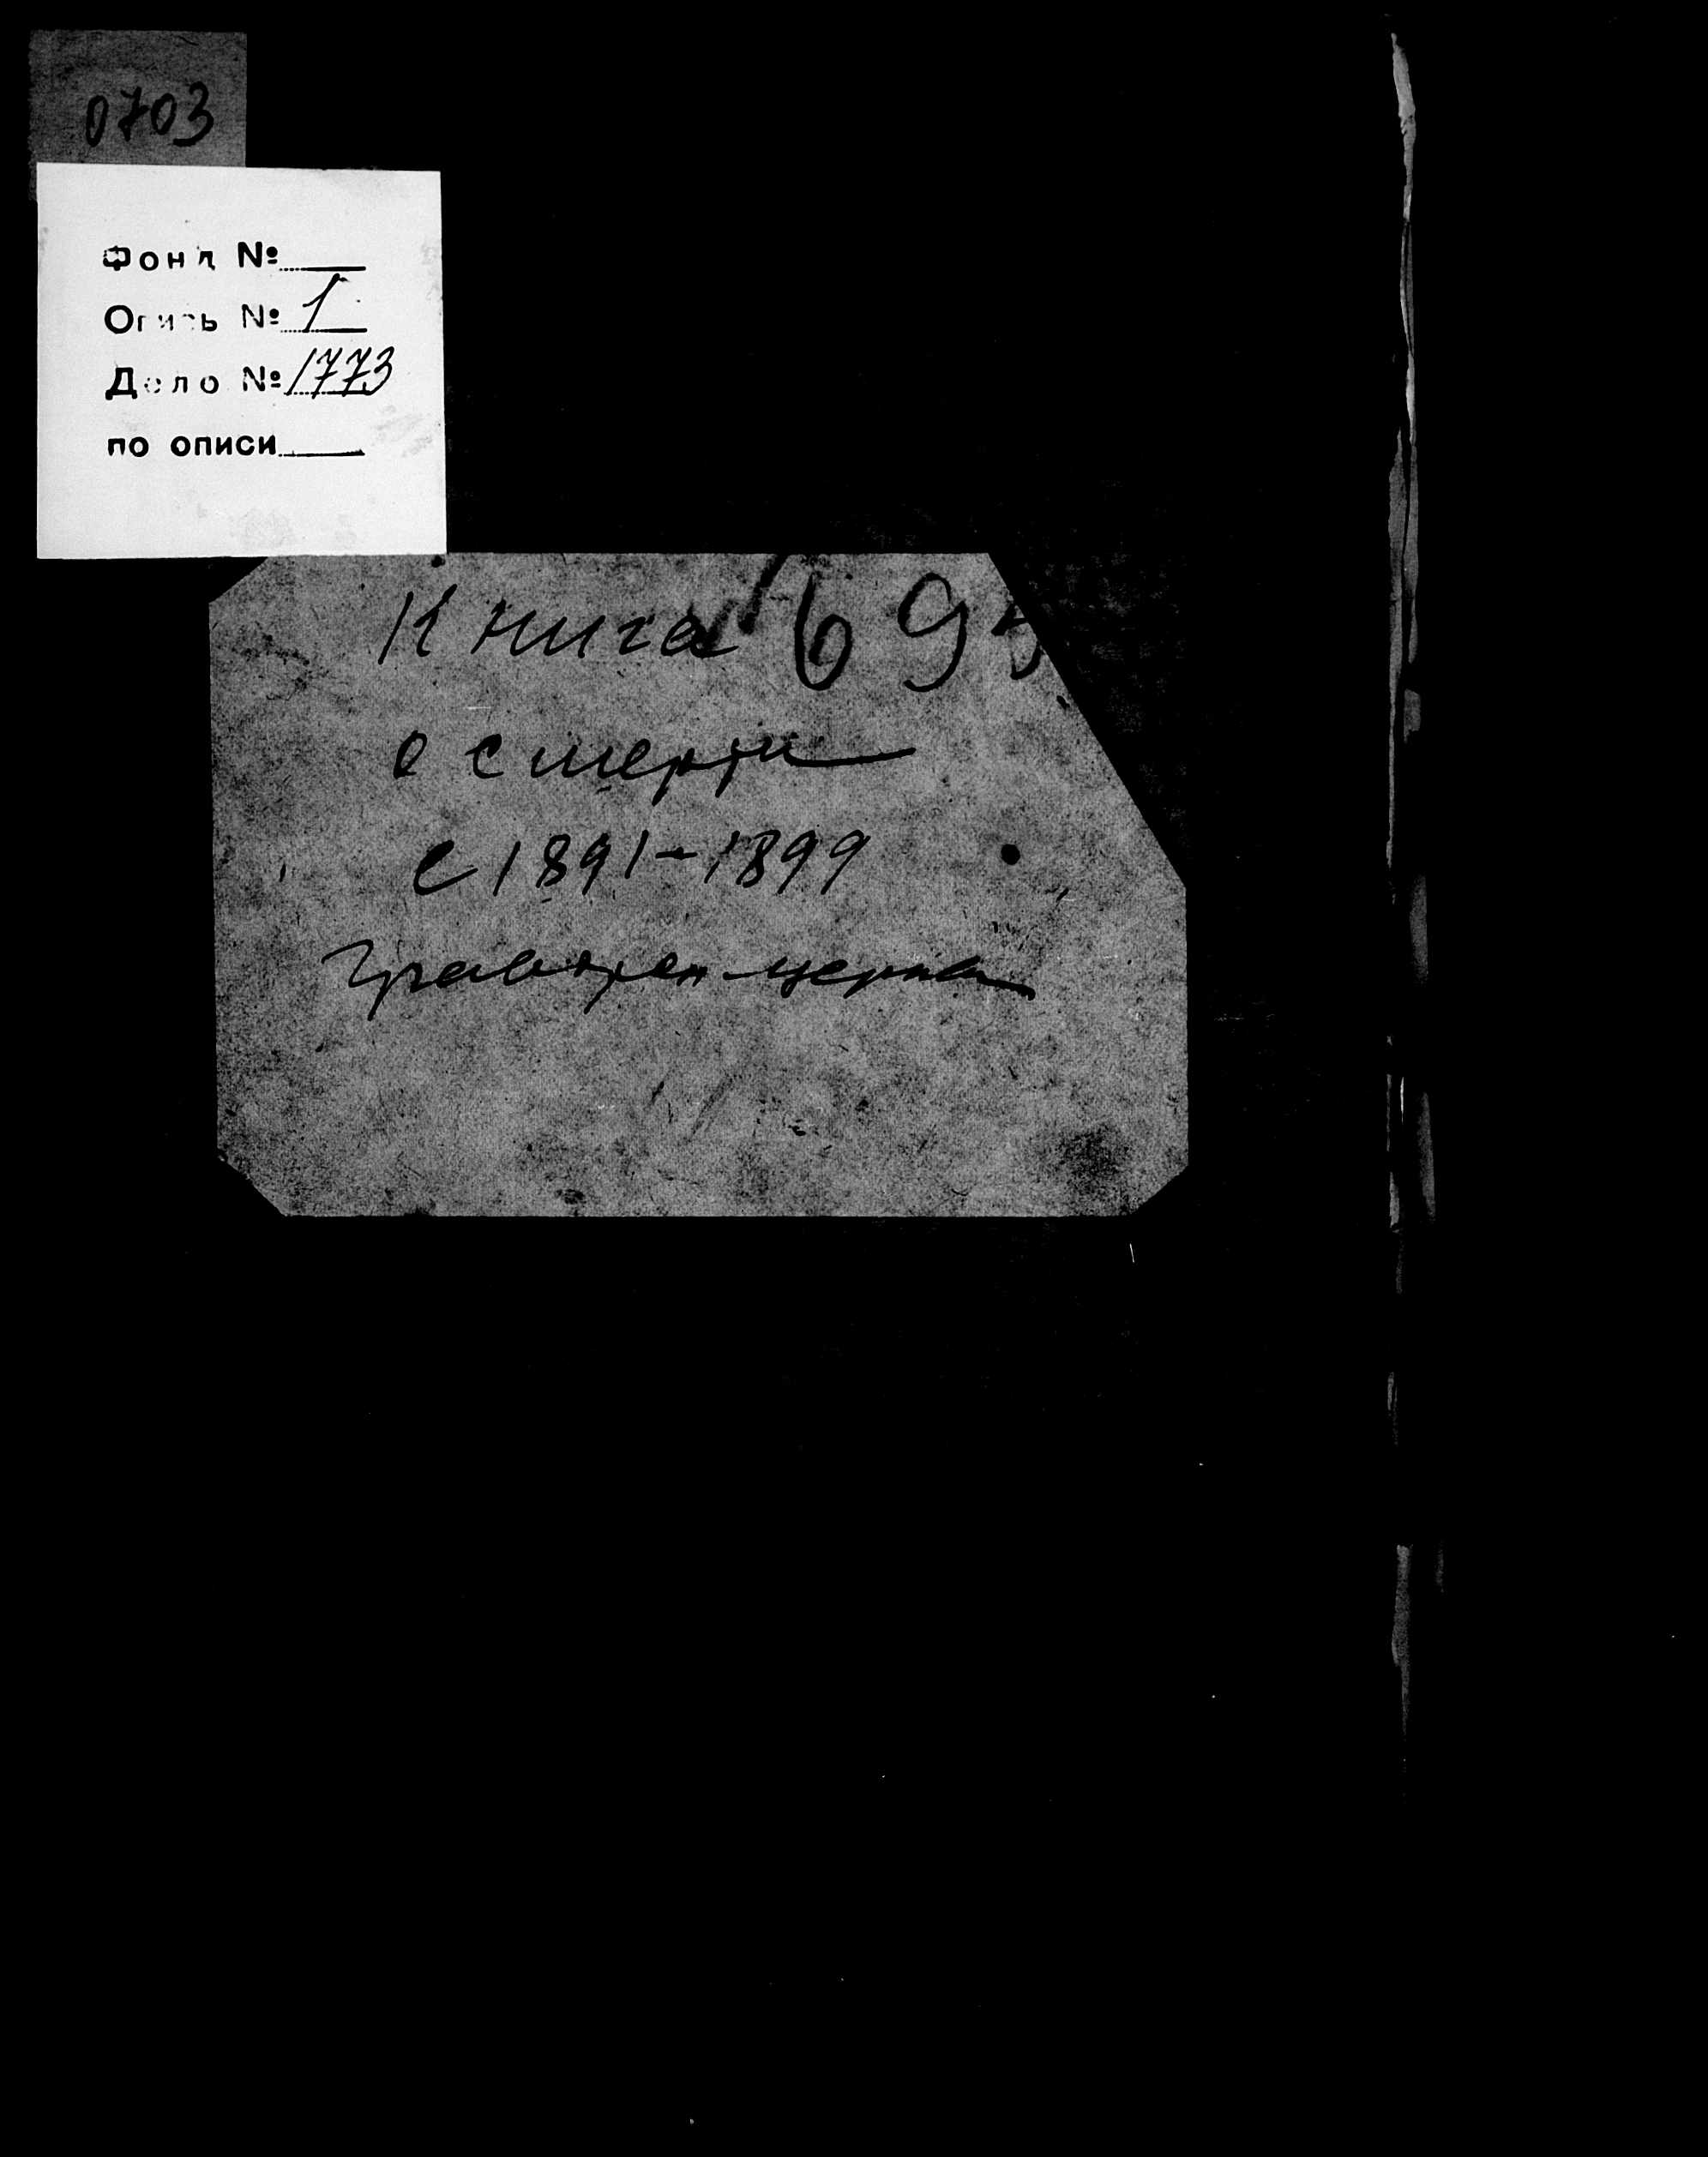 0703
Фонд №
Опись № 1
Дело № 1773
по описи
Книга 695
о смерти
с 1891-1899
церкви